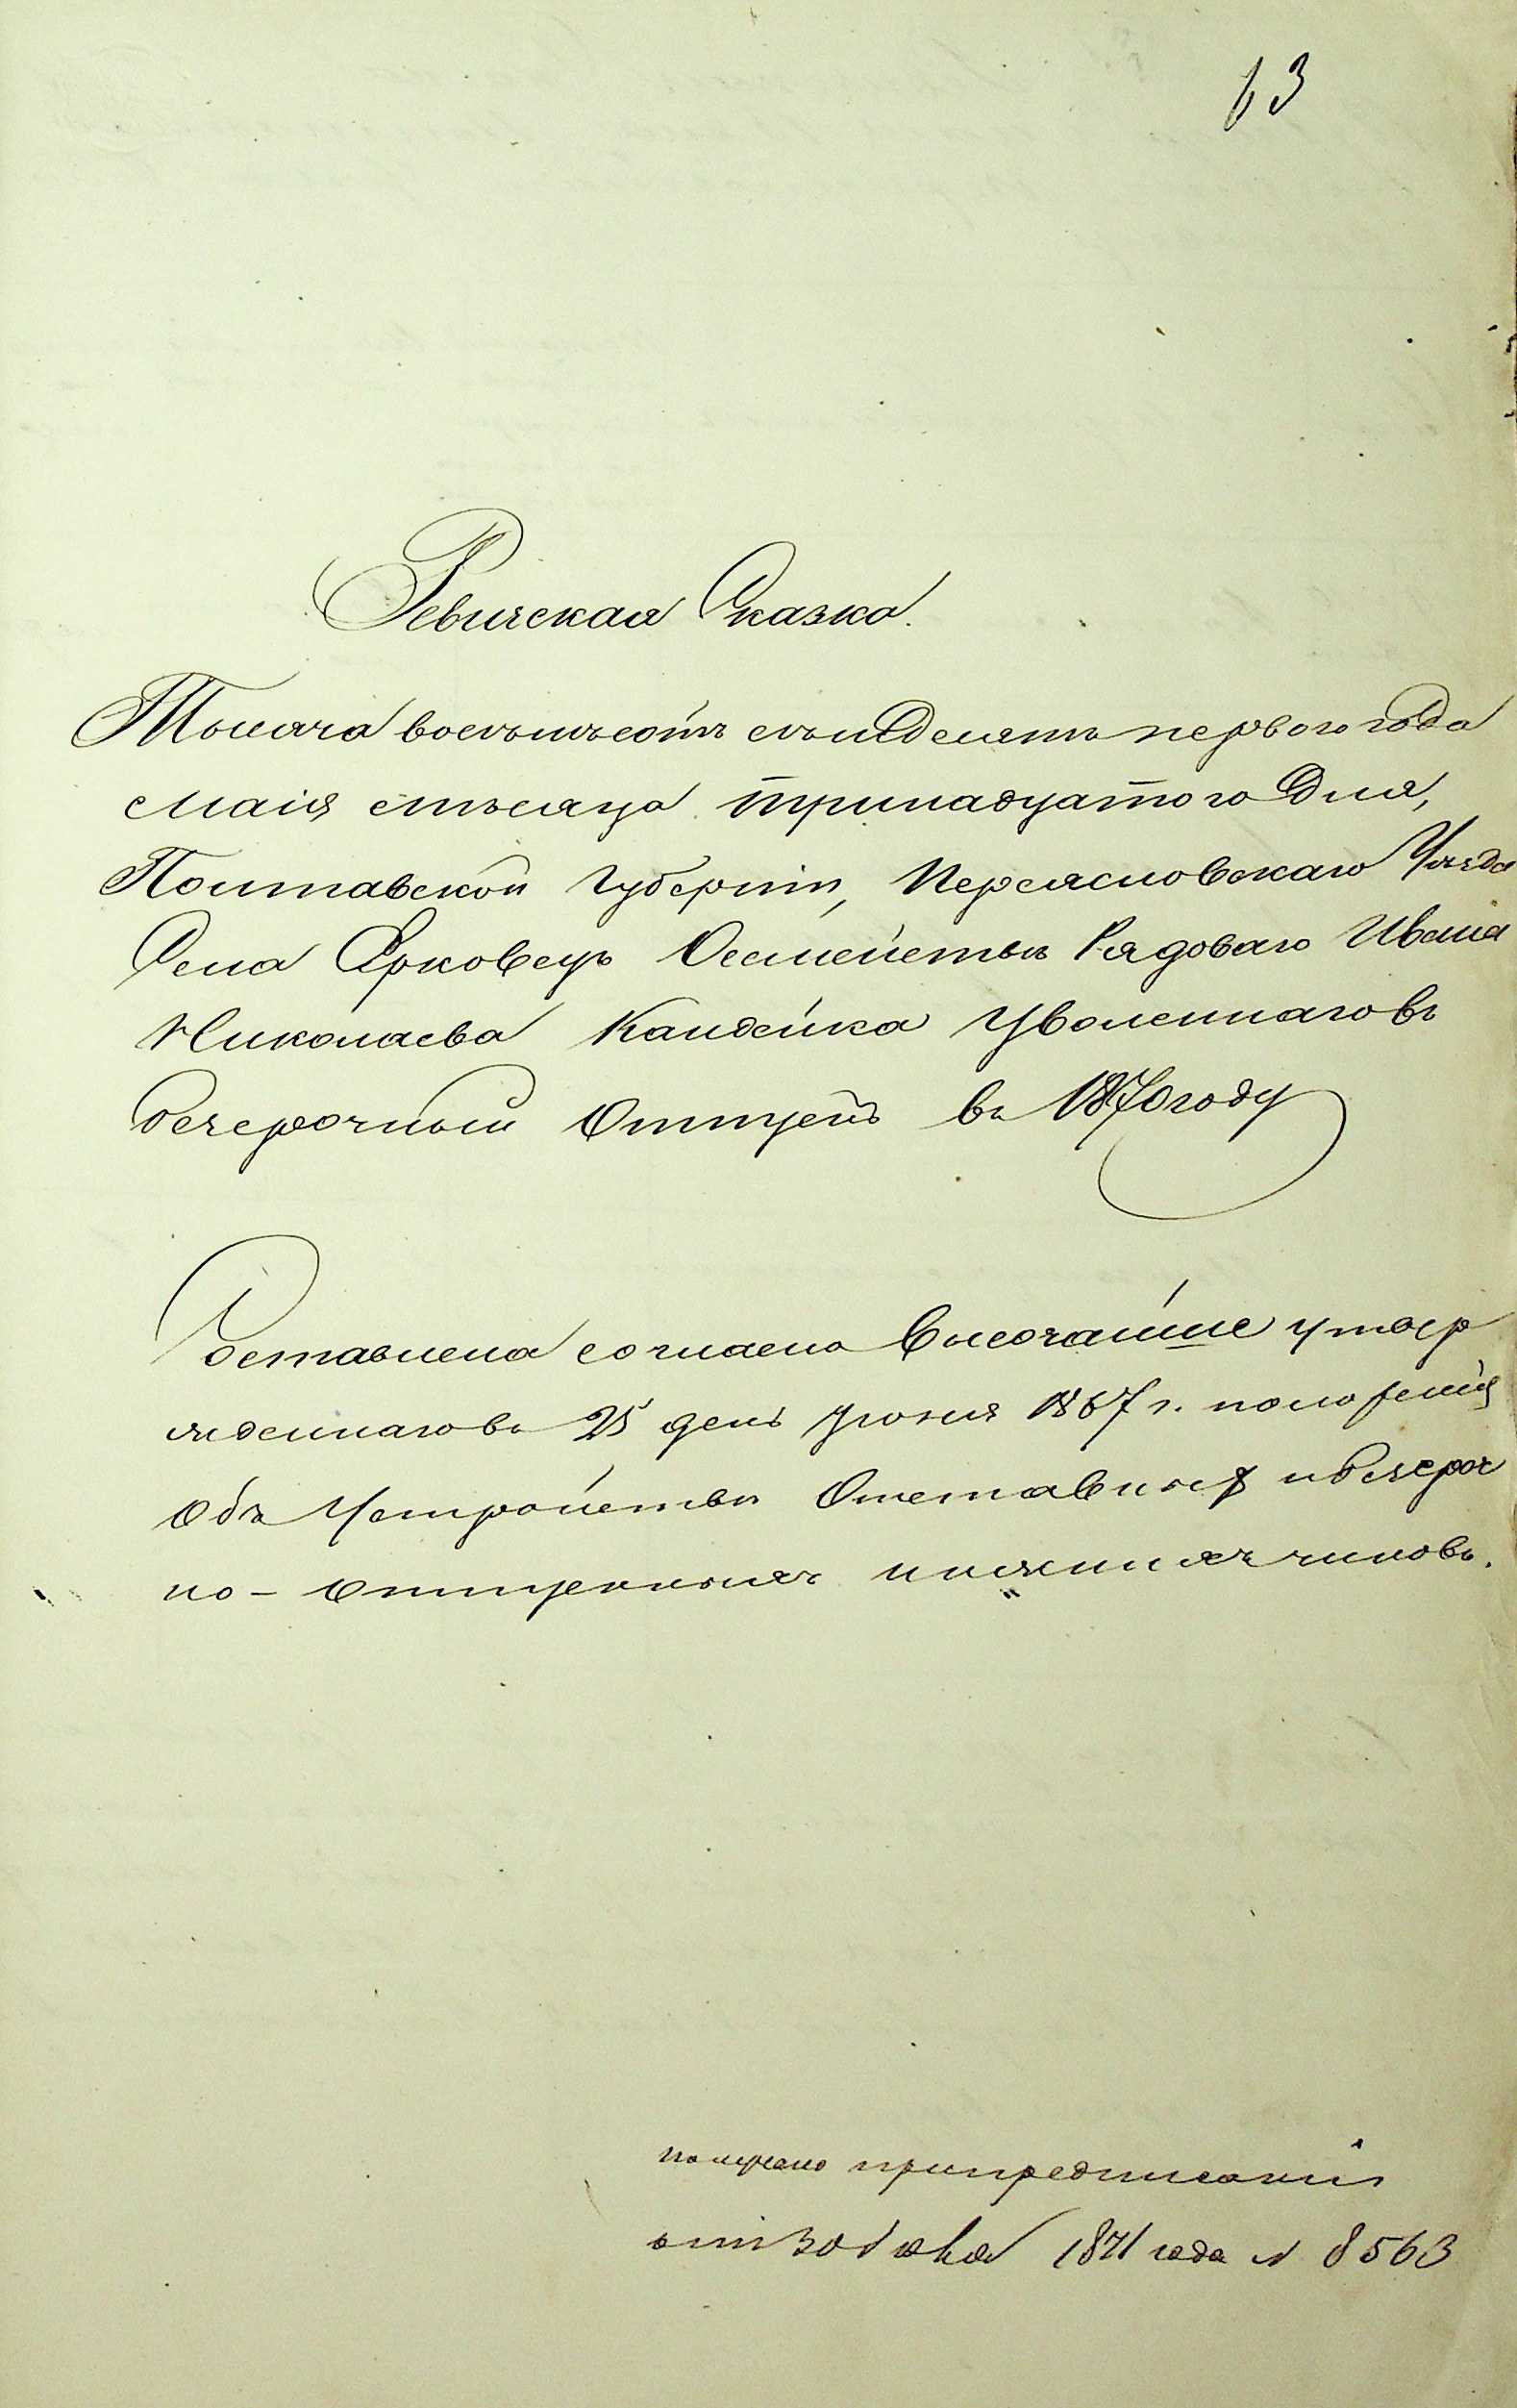 63
Ревизская Сказка.
Тысяча восемьсотъ семьдесятъ первого года
Маія месяца тринадцатого Дня,
Полтавской Губерніи, Переясловскаго Уезда
Села Ярковецъ Осемействѣ Рядоваго Ивана
Николаева Кандейка Уволеннаговъ
безсрочный Отпускъ въ 1870 году
Составлена согласно Высочайше утвер
жденнаговъ 25 день Іюня 1867 г. положенія
Объ Устройствѣ Отставныхъ ибезсроч
но-отпускныхъ нижнихъ чиновъ.
предписаніи
1871 года № 8563